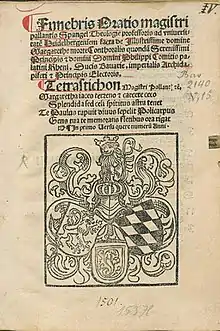 Funebris Oratio magistri
pallantis Spangel Theologie professoris ad universi
tatē Heidelbergensem facta de Illustrissime domine
Margarethe morte Conthoralis quondā Serenissimi
Principis et domini Domini Philippi Comitis pa
latini Rheni, Ducis Bavarie, imperialis Archida
piferi et Principis Electoris.
Tetrastichon Magistri Pallantis
Margaretha iaceo terreno et carcere
Splendida sed celi spiritus astra tenet
rapuit sepelit
Gens rura te memoranda fletibus ora rigat
In primo Versu quere numerū Anni
1501.